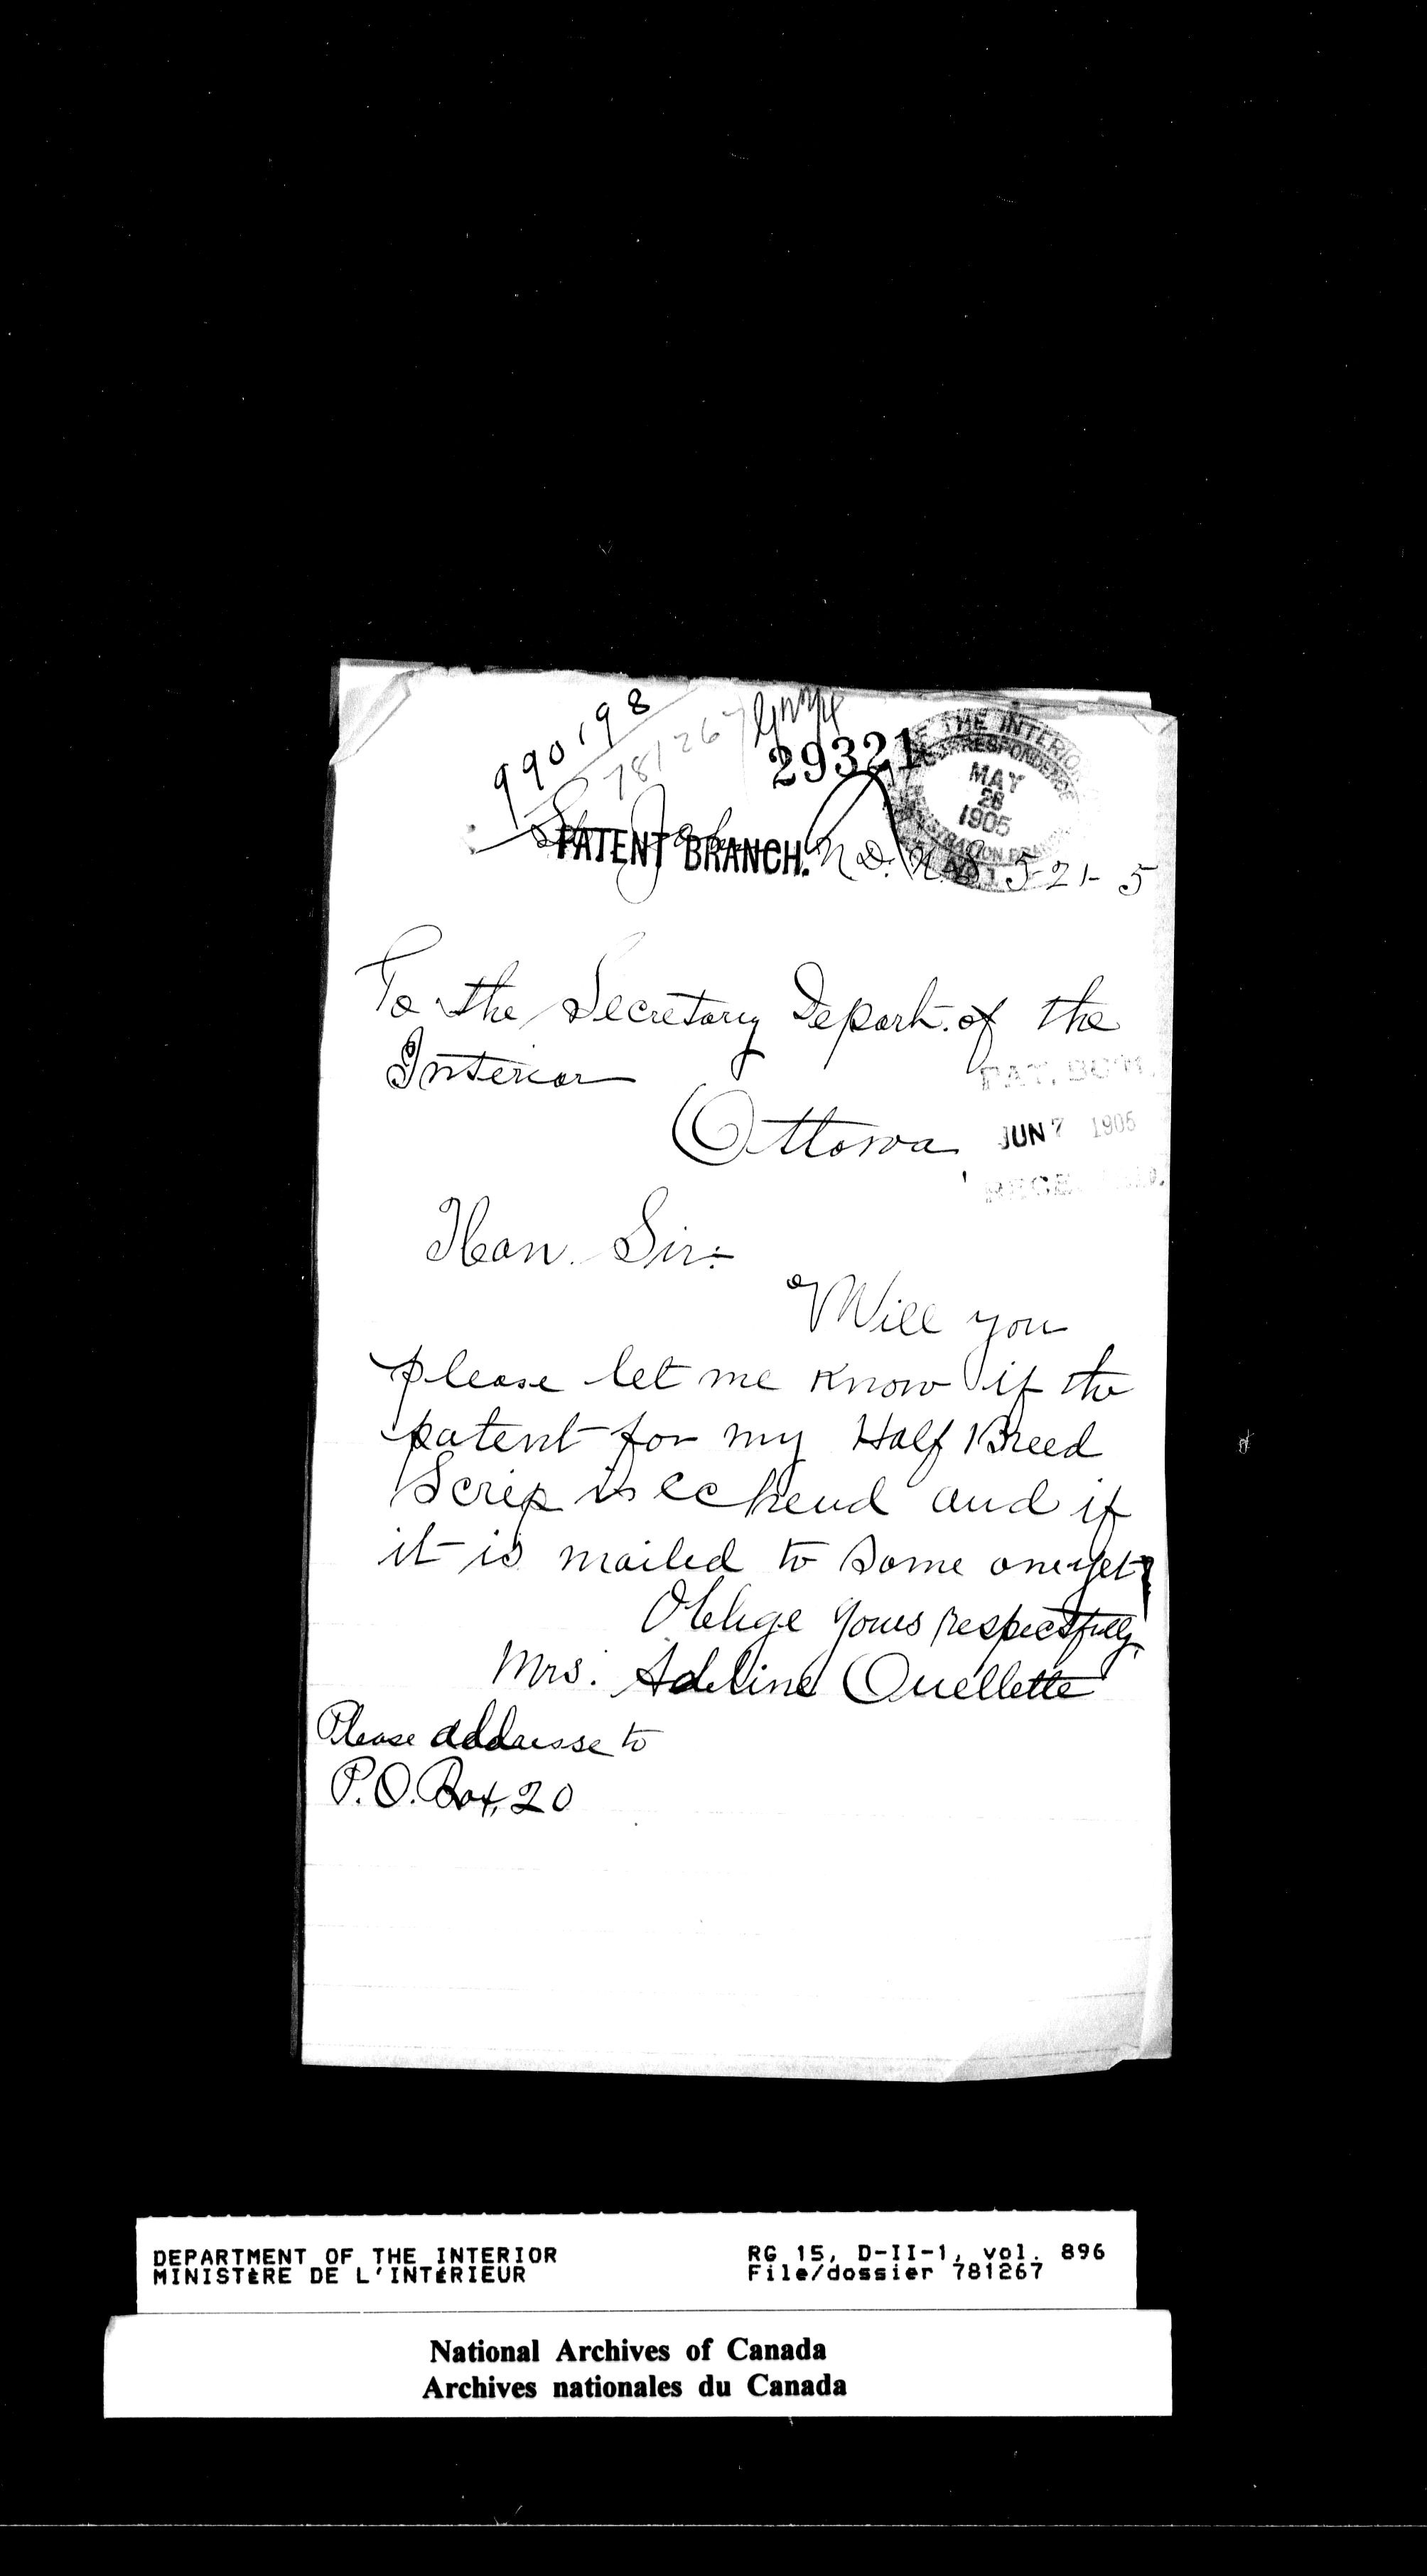 990198
781267
29321
OF THE INTERIOR
CORRESPONDENCE
MAY
26
1905
REGISTRATION BRANCH
NO 1
PATENT BRANCH.
St. John N.D. U.S. 5-21-5
To the Secretary Depart. of the
Interior
Ottowa
JUN 7 1905
Hon. Sir:
Will you
please let me know if the
patent for my Half Breed
Scrip is and if
it is mailed to some one yet?
Oblige yours respectfully,
Mrs. Adeline Ouellette
Please addresse to
P.O. Box, 20
DEPARTMENT OF THE INTERIOR
MINISTÈRE DE L'INTÉRIEUR
RG 15, D-II-1, vol. 896
File/dossier 781267
National Archives of Canada
Archives nationales du Canada